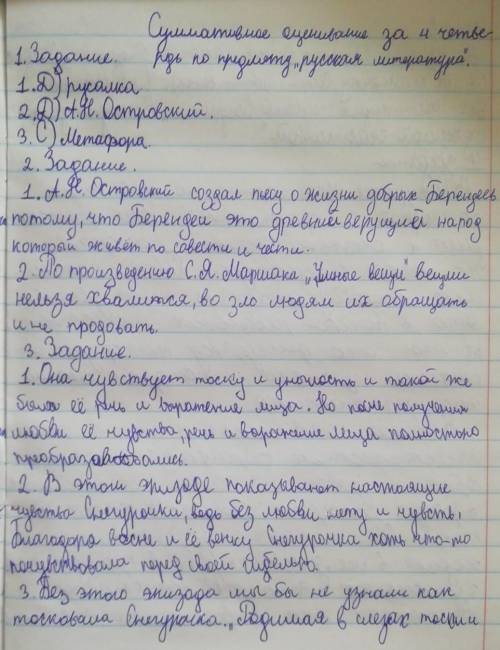 Суммативное оценивание за 4 четве-
1. Задание. рдь по предмету „русская литература“.
1. Д) русалка
2. Д) А.Н. Островский.
3. С) Метафора.
2. Задание.
1. А.Н. Островский создал пьесу о жизни добрых Берендеев
потому, что Берендеи это древний верущией народ
который живёт по совести и чести.
2. По произведению С.Я. Маршака „Умные вещи“ вещми
нельзя хвалится, во зло людям их обращать
и не продовать.
3. Задание.
1. Она чувствует тоску и унылость и такой же
была её речь и выражение лица. Но после получения
любви её чувства, речь и выражение лица полностью
преобразовались.
2. В этом эпизоде показывают настоящие
чувства Снегурочки, ведь без любви нету и чувств.
Благодаря весне и её венку Снегурочка хоть что-то
почувствовала перед своей гибелью.
3. Без этого эпизода мы бы не узнали как
тосковала Снегурочка. „Родимая в слезах тоски и